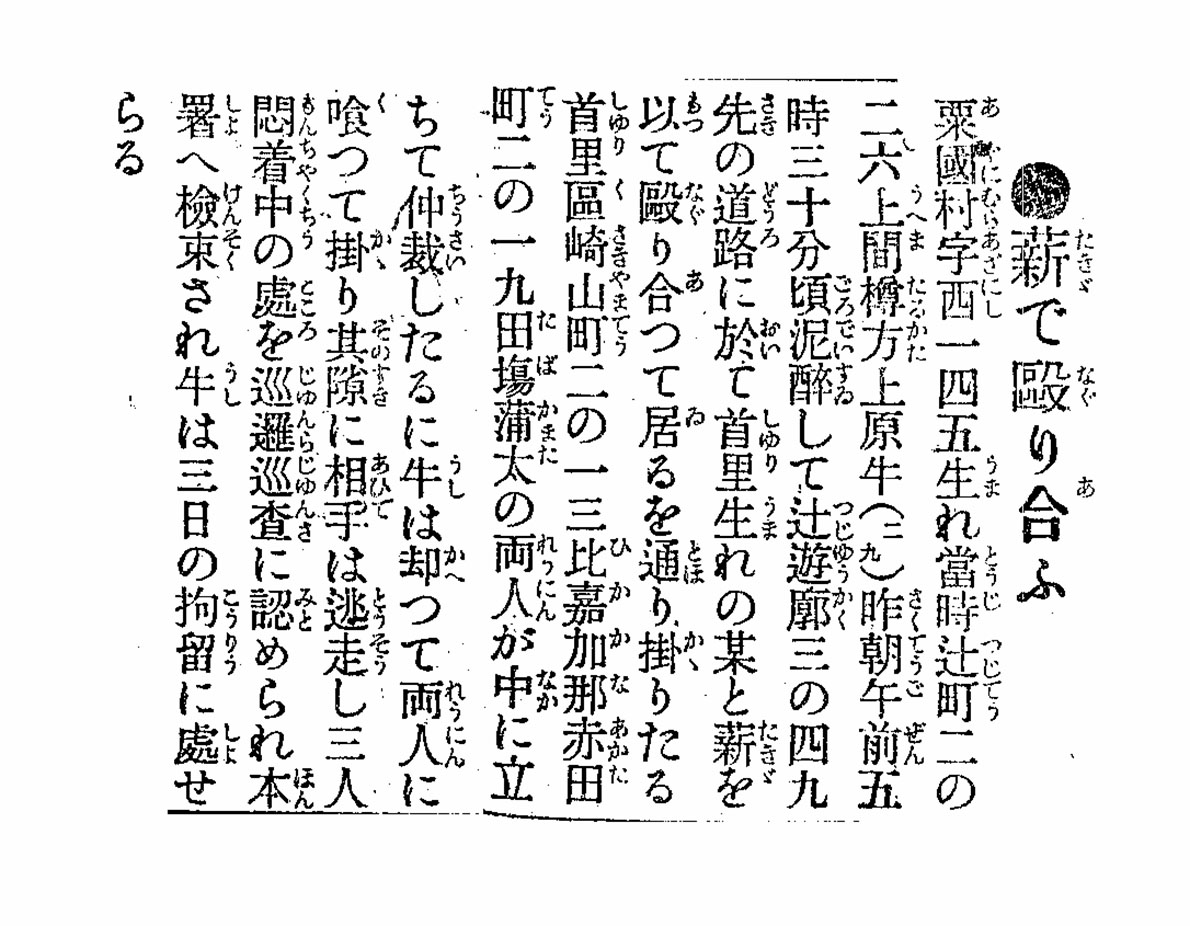 ●薪で毆り合ふ
粟國村字西一四五生れ當時辻町二の
二六上間樽方上原牛（二九）昨朝午前五
時三十分頃泥醉して辻遊廓三の四九
先の道路に於て首里生れの某と薪を
以て毆り合つて居るを通り掛りたる
首里區崎山町二の一三比嘉加那赤田
町二の一九田塲蒲太の両人が中に立
ちて仲裁したるに牛は却つて両人に
喰つて掛り其隙に相手は逃走し三人
悶着中の處を巡邏巡査に認められ本
署へ檢束され牛は三日の拘留に處せ
らる